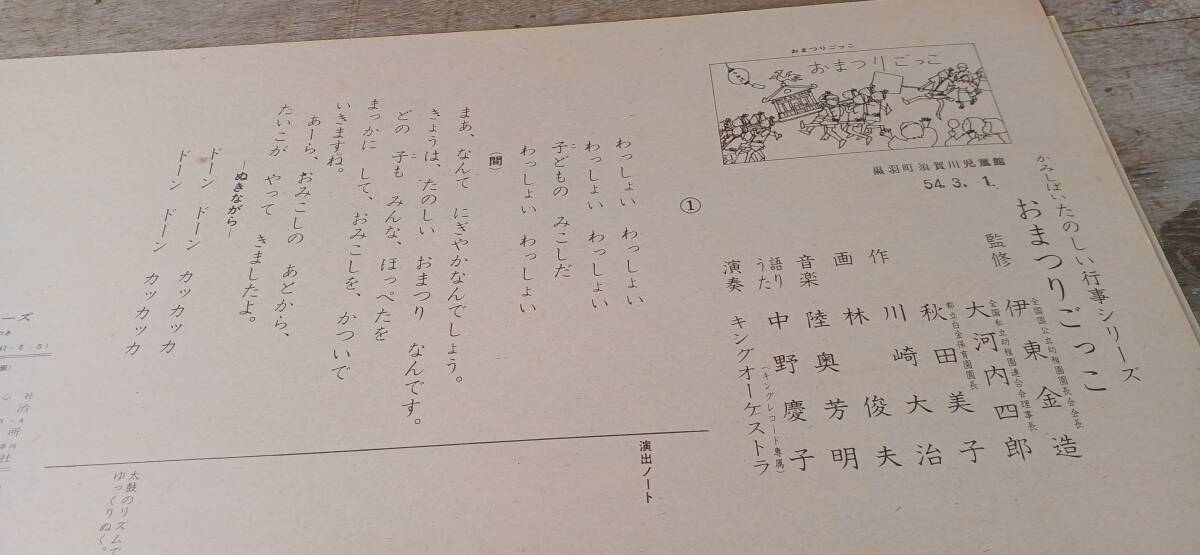 かみしばいたのしい行事シリーズ
おまつりごっこ
監修
全国国公立幼稚園園長会会長
伊東金造
全国私立幼稚園連合会理事長
大河内四郎
都立白金保育園園長
秋田美子
作 川崎大治
画 林俊夫
音楽 陸奥芳明
語り
うた
中野慶子
(キングレコード専属)
演奏 キングオーケストラ
おまつりごっこ
おまつりごっこ
黒羽町須賀川児童館
54.3.1.
①
わっしょい わっしょい
わっしょい わっしょい
子どもの みこしだ
わっしょい わっしょい
(間)
まあ、なんて にぎやかなんでしょう。
きょうは、たのしい おまつり なんです。
どの 子も みんな、ほっぺたを
まっかに して、おみこしを、かついで
いきますね。
あーら、おみこしの あとから、
たいこが やって きましたよ。
―ぬきながら―
ドーン ドーン カッカッカ
ドーン ドーン カッカッカ
演出ノート
太鼓のリズムで
ゆっくりぬく。
ーズ